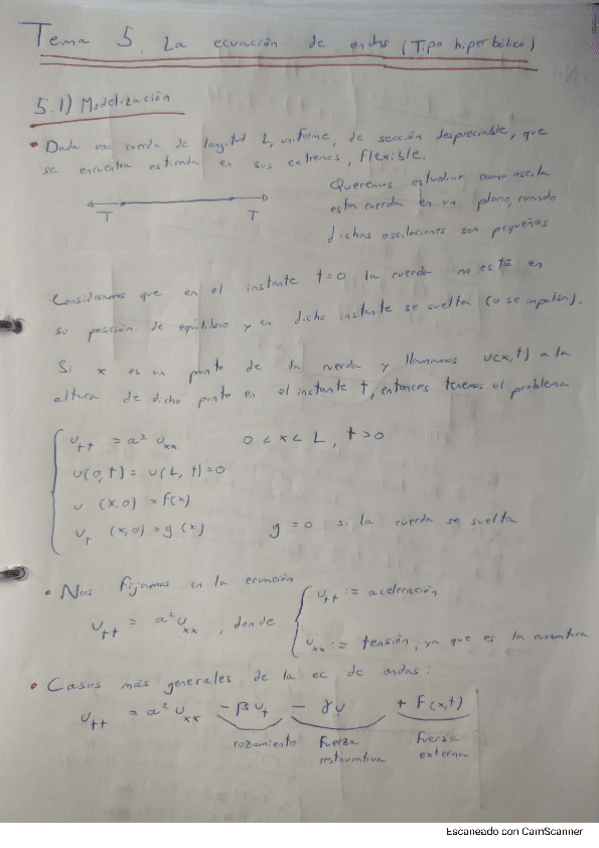 Tema 5. La ecuación de ondas (Tipo hiperbólico)
5.1) Modelización
• Dada una cuerda de longitud L, uniforme, de sección despreciable, que
se encuentra estirada en sus extremos, flexible.
Queremos estudiar como oscila
esta cuerda en un plano, cuando
dichas oscilaciones son pequeñas
T T
Consideramos que en el instante t=0 la cuerda no está en
su posición de equilibrio y en dicho instante se suelta (o se impulsa).
Si x es un punto de la cuerda y llamamos u(x,t) a la
altura de dicho punto en el instante t, entonces tenemos el problema
u_tt = a² u_xx 0 < x < L, t > 0
u(0,t) = u(L,t) = 0
u (x,0) = f(x)
u_t (x,0) = g(x) g = 0 si la cuerda se suelta
• Nos fijamos en la ecuación
u_tt = a² u_xx, donde
u_tt := aceleración
u_xx := tensión, ya que es la curvatura
• Casos más generales de la ec de ondas:
u_tt = a² u_xx - β u_t - γ u + F(x,t)
rozamiento fuerza restaurativa fuerza externa
Escaneado con CamScanner